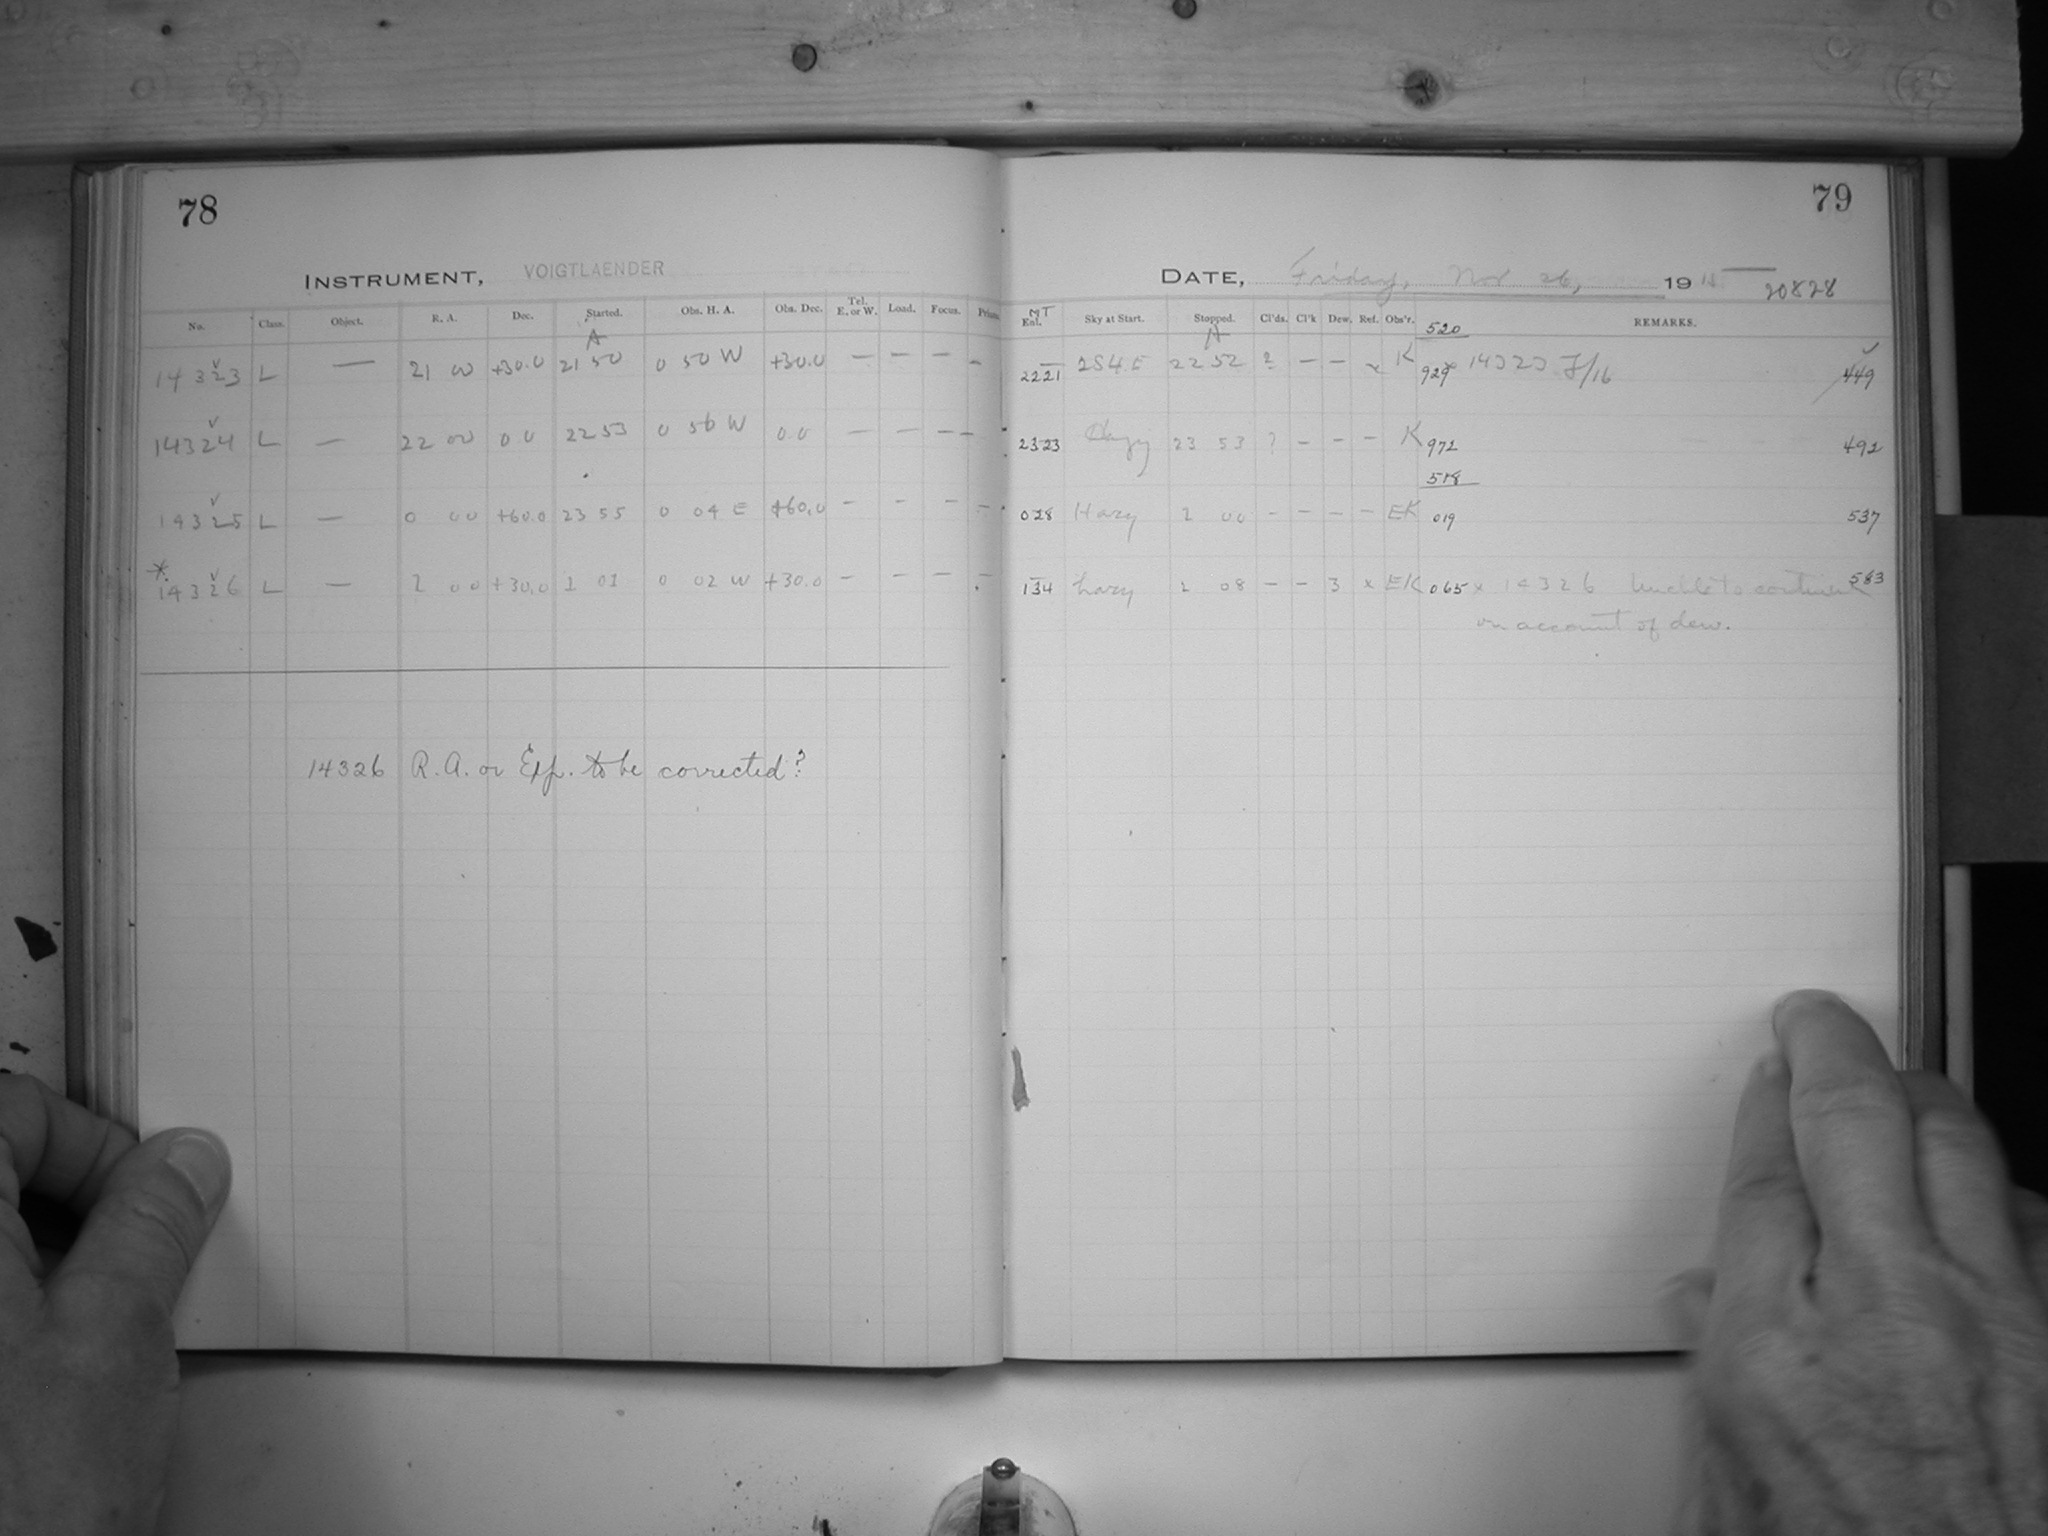 78
INSTRUMENT, VOIGTLAENDER
No. Class. Object. R. A. Dec. Started. Obs. H. A. Obs. Dec. Tel. E. or W. Load. Focus.
A
14323 L — 21 00 +30.0 21 50 0 50 W +30.0 — — — –
14324 L — 22 00 0 0 22 53 0 56 W 0.0 — — — –
14325 L — 0 00 +60.0 23 55 0 04 E +60.0 – – – –
* 14326 L — 2 00 +30.0 1 01 0 02 W +30.0 – – – –
14326 R. A. or Exp. to be corrected?
79
DATE, Friday, Nov 26, 19 15 20828
MT
Sky at Start. Stopped. Cl'ds. Cl'k Dew. Ref. Obs'r. REMARKS.
A 520
2221 22 52 ? – – x K 929 x 14323 F/16 449
2323 Hazy 23 53 ? – – – K 972 492
518
028 Hazy 1 00 – – – – EK 019 537
134 hazy 2 08 – – 3 x EK 065 x 14326 Unable to continue 583
on account of dew.